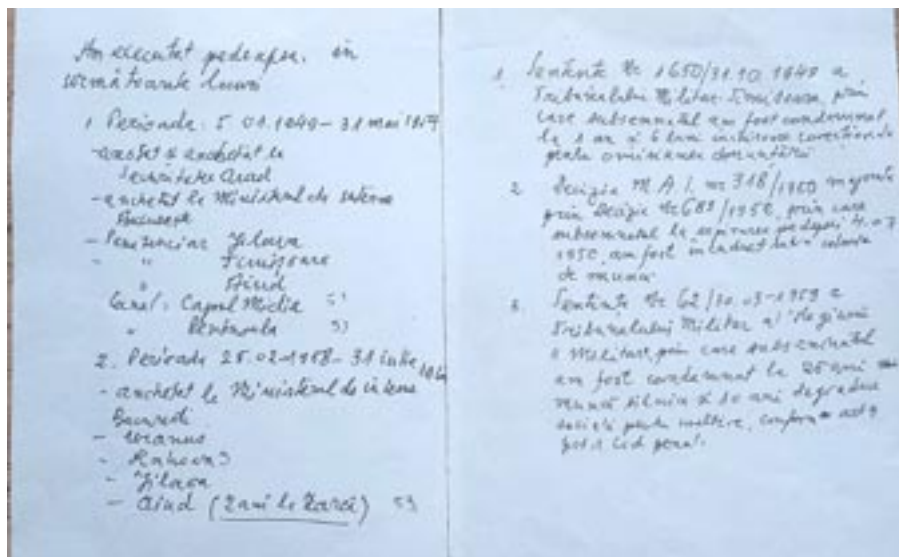 Am executat pedeapsa în
următoarele
1 Perioada: 5.01.1949 – 31 mai
- arestat și anchetat la
Securitatea Arad
- anchetat la Ministerul de Interne
București
- Penitenciar Jilava
- " Timișoara
" Aiud
Canal: Capul Midia
" Peninsula
2. Perioada 25.02-1958 – 31 iulie
- anchetat la Ministerul de interne
- Uranus
- Rahova
- Jilava
- Aiud (2 ani la Zarcă)
1. Sentința Nr 1650/31.10.1949 a
Tribunalului Militar Timișoara, prin
care subsemnatul am fost condamnat
la 1 an și 6 luni închisoare corecțională
pentru omisiunea denunțării
2. Decizia M.A.I. nr 318/1950
prin Decizia Nr 689/ prin care
subsemnatul la expirarea pedepsei 4.07
1950, am fost încadrat într-o colonie
de muncă
3. Sentința Nr 62/30.03-1959 a
Tribunalului Militar al Regiunii
a Militare, prin care subsemnatul
am fost condamnat la 25 ani
muncă silnică și 10 ani degradare
pentru conform
Cod penal.